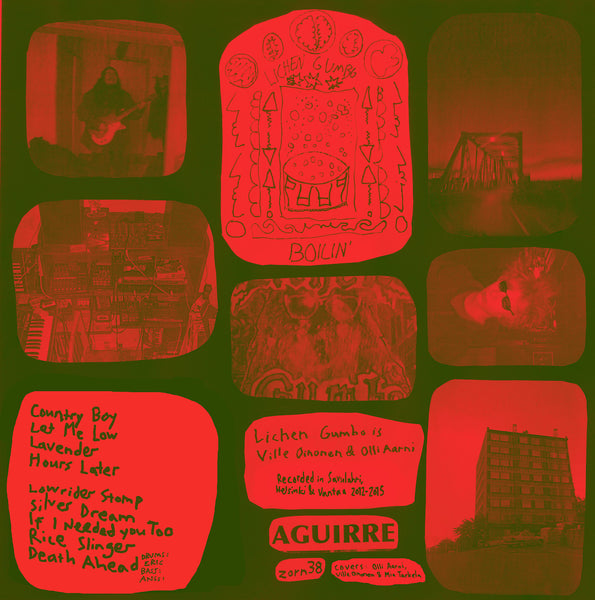 LICHEN GUMBO
BOILIN'
Gumbo
Country Boy
Let Me Low
Lavender
Hours Later
Lowrider Stomp
Silver Dream
If I Needed you Too
Rice Slinger
Death Ahead
DRUMS:
ERIC
BASS:
Lichen Gumbo is
Ville Oinonen & Olli Aarni
Recorded in
Helsinki & Vantaa 2012-2015
AGUIRRE
zorn38
covers: Olli Aarni,
Ville Oinonen & Mia Tarkela